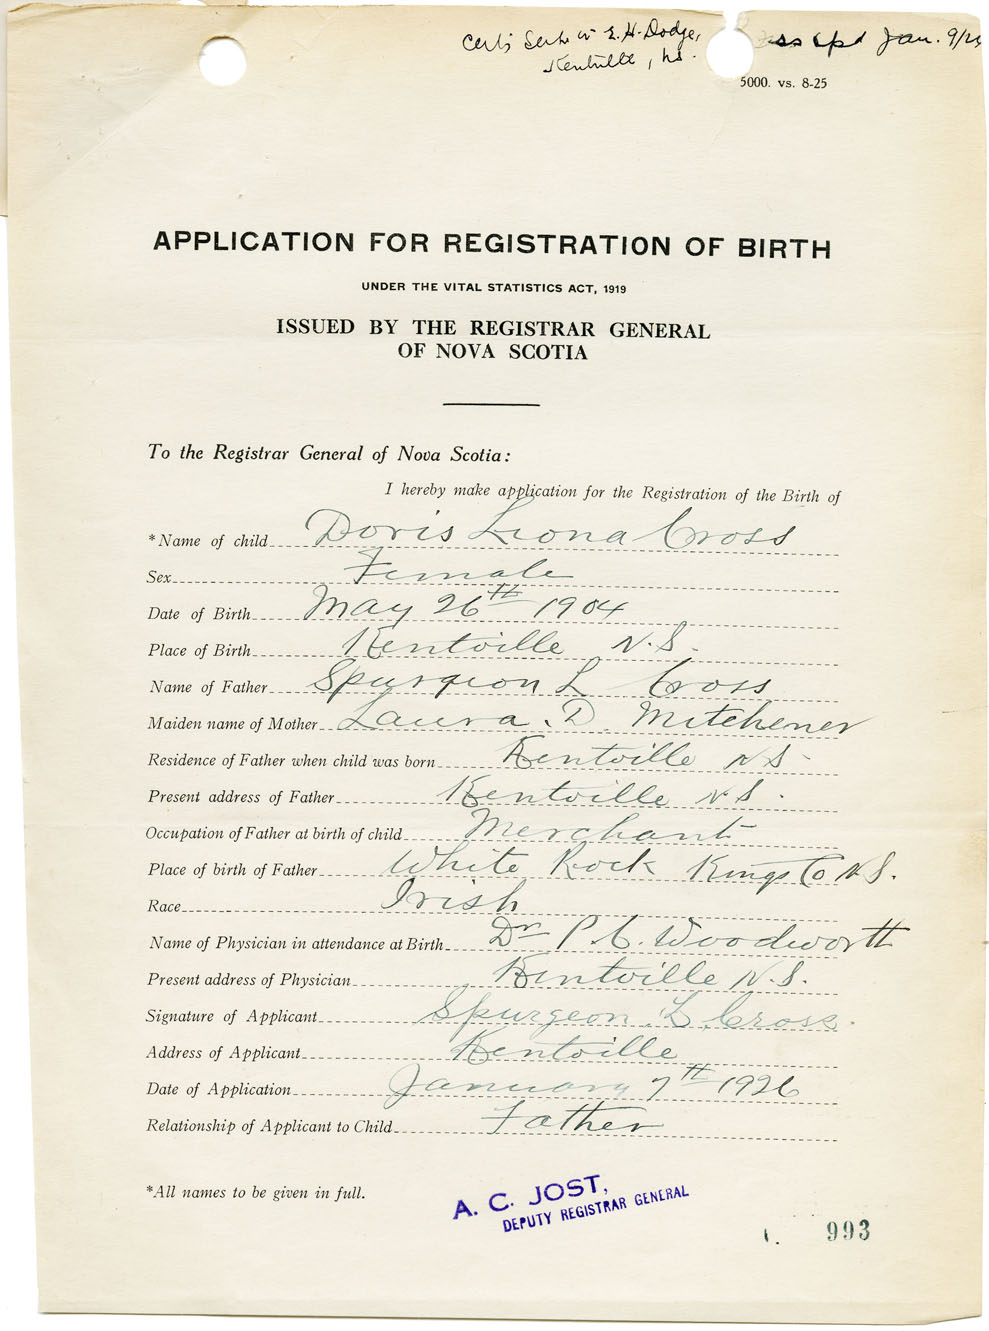 Cert. Sent to E. H. Dodge, Jan. 9/26
Kentville, N.S.
5000. vs. 8-25
APPLICATION FOR REGISTRATION OF BIRTH
UNDER THE VITAL STATISTICS ACT, 1919
ISSUED BY THE REGISTRAR GENERAL
OF NOVA SCOTIA
To the Registrar General of Nova Scotia:
I hereby make application for the Registration of the Birth of
*Name of child Doris Leona Cross
Sex Female
Date of Birth May 26th 1904
Place of Birth Kentville N.S.
Name of Father Spurgeon L Cross
Maiden name of Mother Laura. D. Mitchener
Residence of Father when child was born Kentville N.S.
Present address of Father Kentville N.S.
Occupation of Father at birth of child Merchant
Place of birth of Father White Rock Kings Co N.S.
Race Irish
Name of Physician in attendance at Birth Dr P. C. Woodworth
Present address of Physician Kentville N.S.
Signature of Applicant Spurgeon. L. Cross.
Address of Applicant Kentville
Date of Application January 7th 1926
Relationship of Applicant to Child Father
*All names to be given in full.
A. C. JOST,
DEPUTY REGISTRAR GENERAL
993